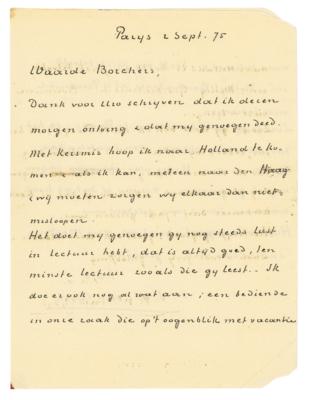 Parys 2 Sept. 75
Waarde Borchers,
Dank voor Uw schryven dat ik dezen
morgen ontving & dat my genoegen deed.
Met Kersmis hoop ik naar Holland te ko-
men & als ik kan, meteen naar den Haag
& wy moeten zorgen wy elkaar dan niet
misloopen.
Het doet my genoegen gy nog steeds lust
in lectuur hebt, dat is altyd goed, ten
minste lectuur zooals die gy leest. Ik
doe er ook nog al wat aan; een bediende
in onze zaak die op't oogenblik met vacantie